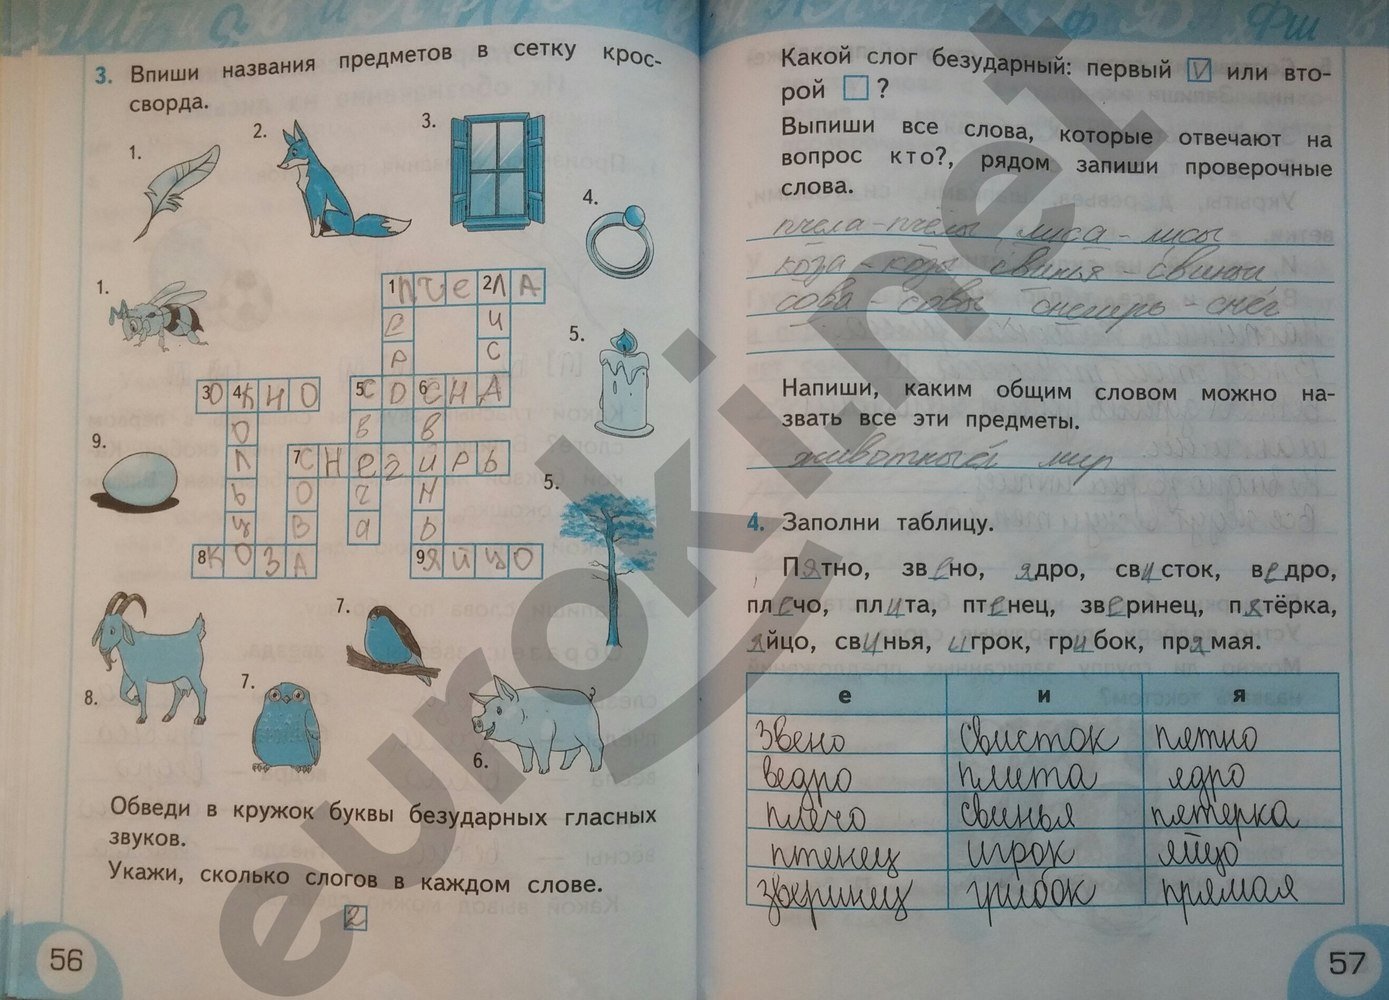 3. Впиши названия предметов в сетку крос-
сворда.
1.
2.
3.
4.
1.
5.
9.
5.
8.
7.
7.
6.
1 пчела
2 лиса
перо
3 окно
4 кольцо
5 сосна
свеча
6 свинья
7 снегирь
сова
8 коза
9 яйцо
Обведи в кружок буквы безударных гласных
звуков.
Укажи, сколько слогов в каждом слове.
2
56
Какой слог безударный: первый V или вто-
рой ?
Выпиши все слова, которые отвечают на
вопрос кто?, рядом запиши проверочные
слова.
пчела - пчёлы лиса - лисы
коза - козы свинья - свиньи
сова - совы снегирь - снег
Напиши, каким общим словом можно на-
звать все эти предметы.
животный мир
4. Заполни таблицу.
Пятно, звено, ядро, свисток, ведро,
плечо, плита, птенец, зверинец, пятёрка,
яйцо, свинья, игрок, грибок, прямая.
е и я
звено свисток пятно
ведро плита ядро
плечо свинья пятерка
птенец игрок яйцо
зверинец грибок прямая
57
eurokinet